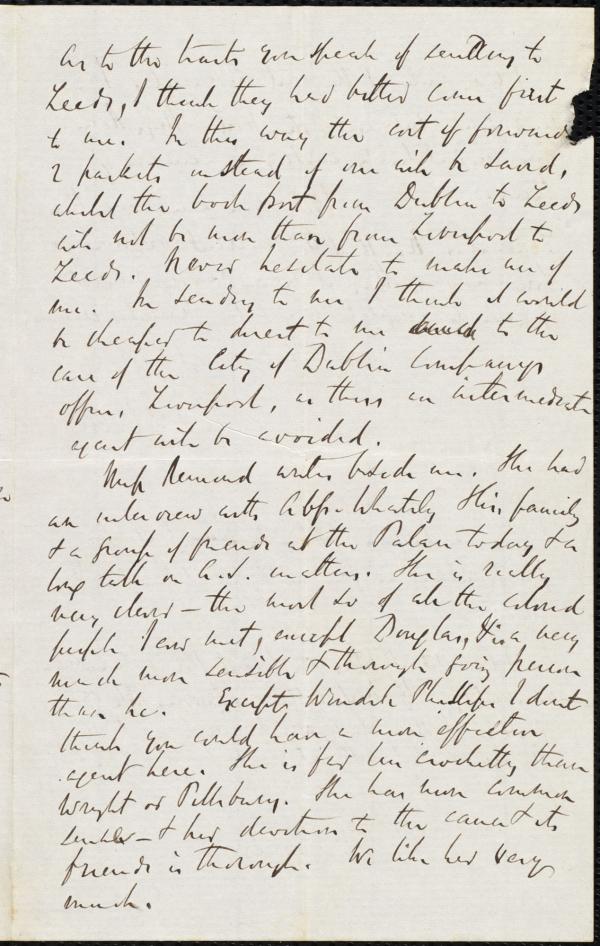 As to the tracts you speak of sending to
Leeds, I think they had better come first
to me. In this way the cost of forwardg
2 packets instead of one will be saved,
whilst the book post from Dublin to Leeds
will not be more than from Liverpool to
Leeds. Never hesitate to make use of
me. In sending to me I think it would
be cheaper to direct to me to the
care of the City of Dublin Company's
office, Liverpool, as thus an intermediate
agent will be avoided.
Miss Remond writes beside me. She had
an interview with Abp. Whately His family
& a group of friends at the Palace today & a
long talk on A.S. matters. She is really
very clever – the most so of all the colored
people I ever met, except Douglas, & is a very
much more sensible & thorough going person
than he. Except Wendell Phillips I don't
think you could have a more effective
agent here. She is far less crochetty than
Wright or Pillsbury. She has more common
sense – & her devotion to the cause & its
friends is thorough. We like her very
much.